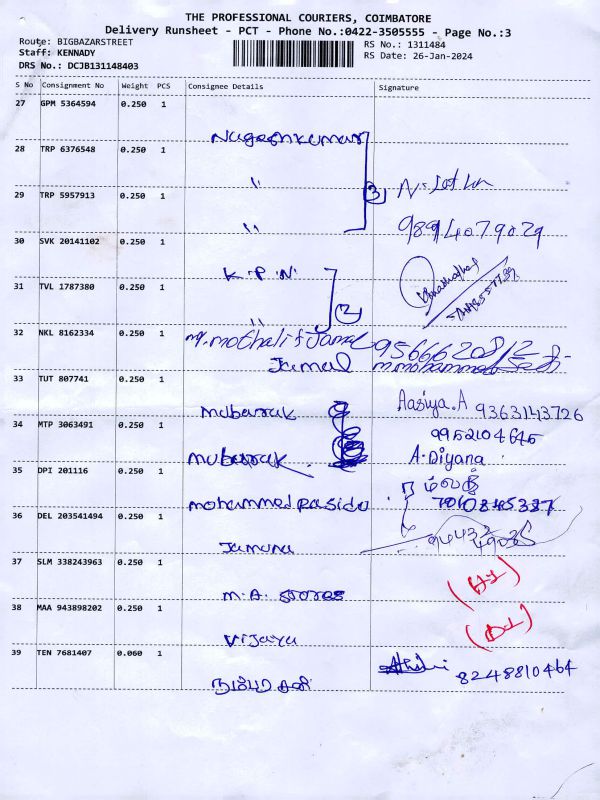 THE PROFESSIONAL COURIERS, COIMBATORE
Delivery Runsheet - PCT - Phone No.:0422-3505555 - Page No.:3
Route: BIGBAZARSTREET
RS No.: 1311484
Staff: KENNADY
RS Date: 26-Jan-2024
DRS No.: DCJB131148403
S No Consignment No Weight PCS Consignee Details Signature
27 GPM 5364594 0.250 1
Nageshkumar
28 TRP 6376548 0.250 1
"
3
29 TRP 5957913 0.250 1
"
9894079029
30 SVK 20141102 0.250 1
K.P.N
31 TVL 1787380 0.250 1
"
2
32 NKL 8162334 0.250 1
Jamal
33 TUT 807741 0.250 1
mubarak
Aasiya.A 9363143726
34 MTP 3063491 0.250 1
9952104645
mubarak
A.Diyana
35 DPI 201116 0.250 1
mohammed Rasidu
36 DEL 203541494 0.250 1
Jamuna
37 SLM 338243963 0.250 1
M.A. stores
38 MAA 943898202 0.250 1
vijaya
39 TEN 7681407 0.060 1
8248810464